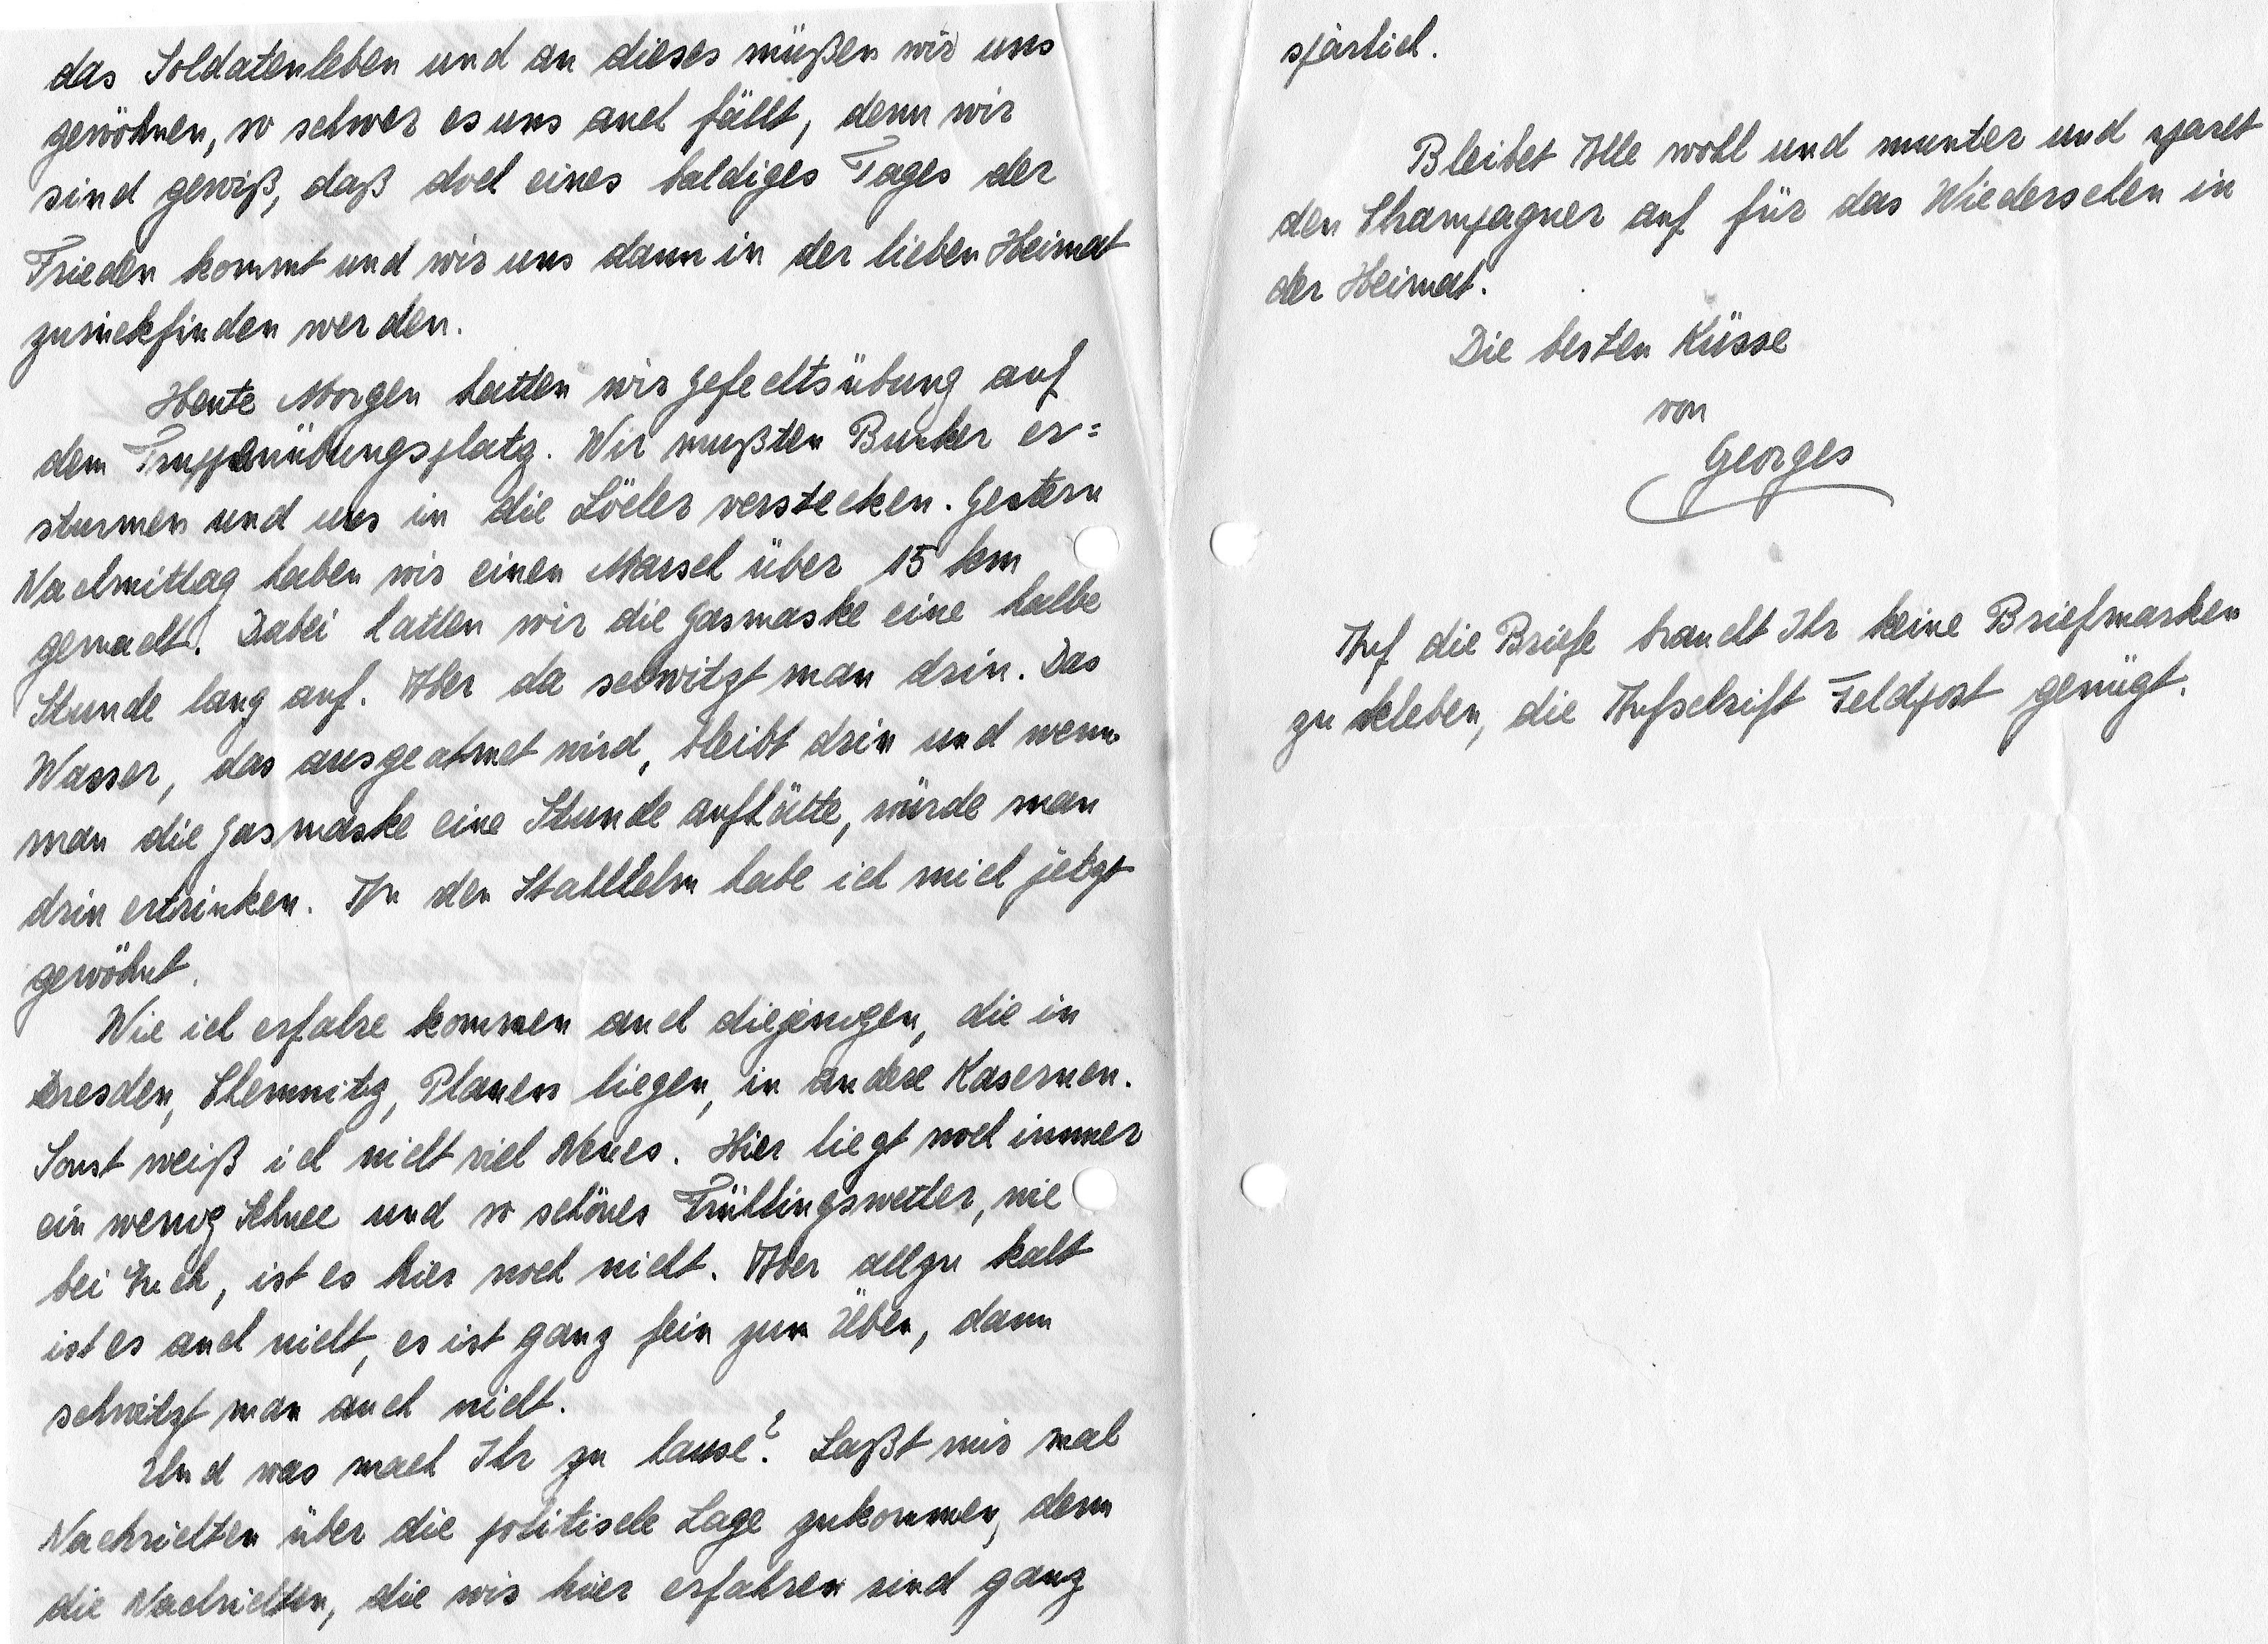 das Soldatenleben und an dieses müßen wir uns
gewöhnen, so schwer es uns auch fällt, denn wir
sind gewiß, daß doch eines baldiges Tages der
Frieden kommt und wir uns dann in der lieben Heimat
zurückfinden werden.
Heute Morgen hatten wir Gefechtsübung auf
dem Truppenübungsplatz. Wir mußten Bunker er=
sturmen und uns in die Löcher verstecken. Gestern
Nachmittag haben wir einen Marsch über 15 km
gemacht. Dabei hatten wir die Gasmaske eine halbe
Stunde lang auf. Aber da schwitzt man drin. Das
Wasser, das ausgeatmet wird, bleibt drin und wenn
man die Gasmaske eine Stunde aufhätte, würde man
drin ertrinken. An den Stahlhelm habe ich mich jetzt
gewöhnt.
Wie ich erfahre kommen auch diejenigen, die in
Dresden, Chemnitz, Planen liegen, in andere Kasernen.
Sonst weiß ich nicht viel Neues. Hier liegt noch immer
ein wenig Schnee und so schönes Frühlingswetter, wie
bei Euch, ist es hier noch nicht. Aber allzu kalt
ist es auch nicht, es ist ganz fein zum Üben, dann
schwitzt man auch nicht.
Und was mach Ihr zu hause? Laßt mir mal
Nachrichten über die politische Lage zukommen, denn
die Nachrichten, die wir hier erfahren sind ganz
spärlich.
Bleibet Alle wohl und munter und sparet
den Champagner auf für das Wiedersehen in
der Heimat.
Die besten Küsse
von
Georges
Auf die Briefe braucht Ihr keine Briefmarken
zu kleben, die Aufschrift Feldpost genügt.